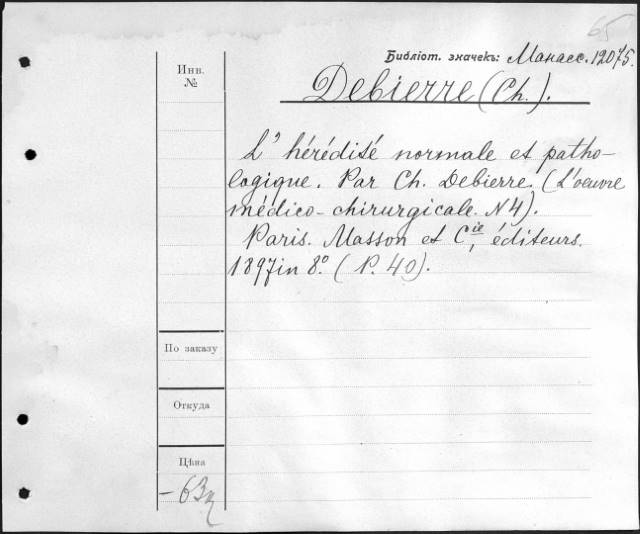 65
Библіот. значекъ: Манасс. 12075.
Инв.
№
Debierre (Ch.).
L' hérédité normale et patho-
logique. Par Ch. Debierre. (L'oeuvre
médico-chirurgicale. N4).
Paris. Masson et Cie, éditeurs.
1897 in 8º. (P. 40).
По заказу
Откуда
Цѣна